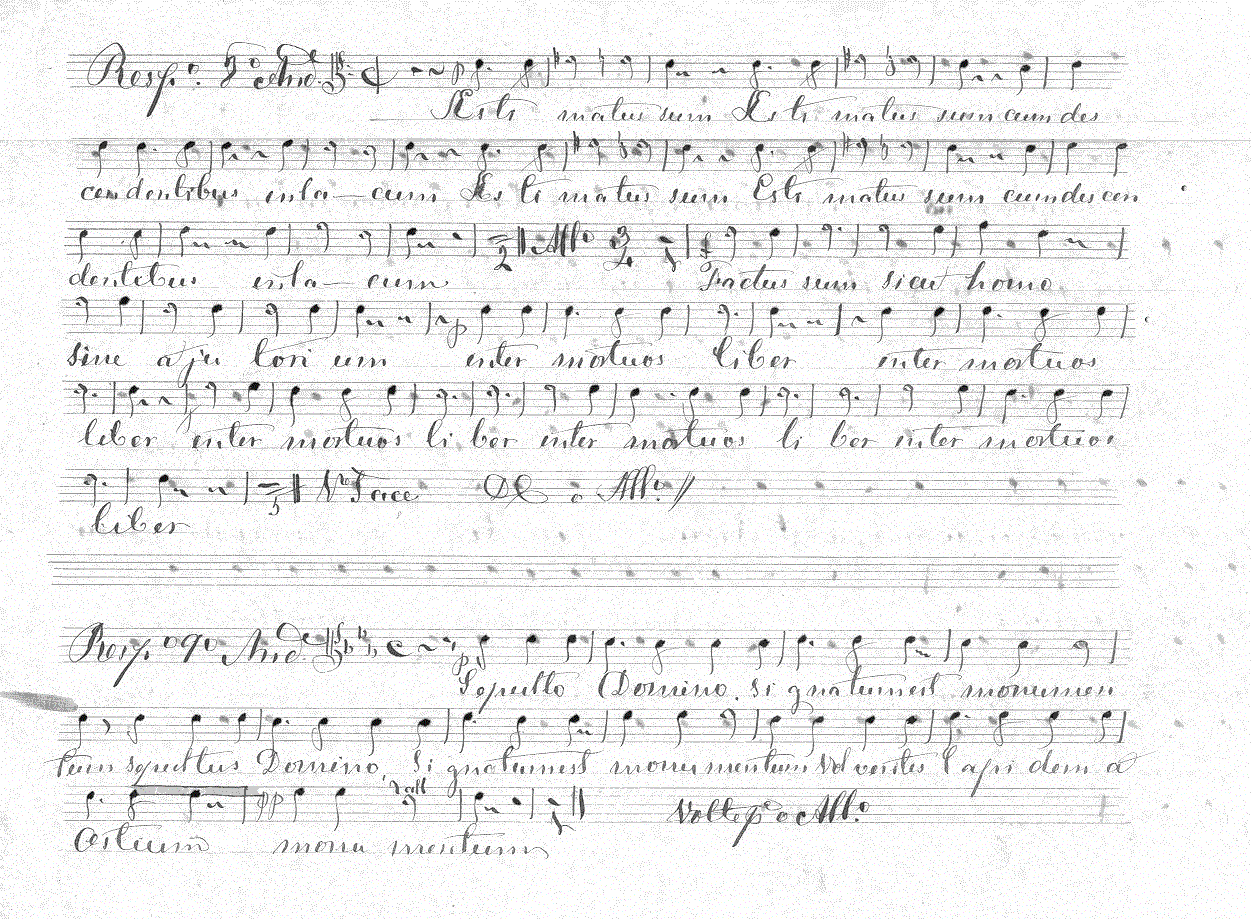 Resp.º 8º And.e
Esti matus sum Esti matus sum cum des
cendentibus inla-cum Es ti matus sum Esti matus sum cumdes cen
2 All.º 3 4
dentibus inla-cum Factus sum sicut homo
sine a ju tori um enter mortuos liber enter mortuos
liber enter mortuos li ber enter mortuos li ber enter mortuos
3 Vº Tace All.º //
liber
Resp.º 9º And.e C
Sepulto Domino. Si gnatumest monumen
tum sepultus Domino, Si gnatumest monumentum Volventes l api dem a
rall Volte pº o All.º
Ostium monu mentum